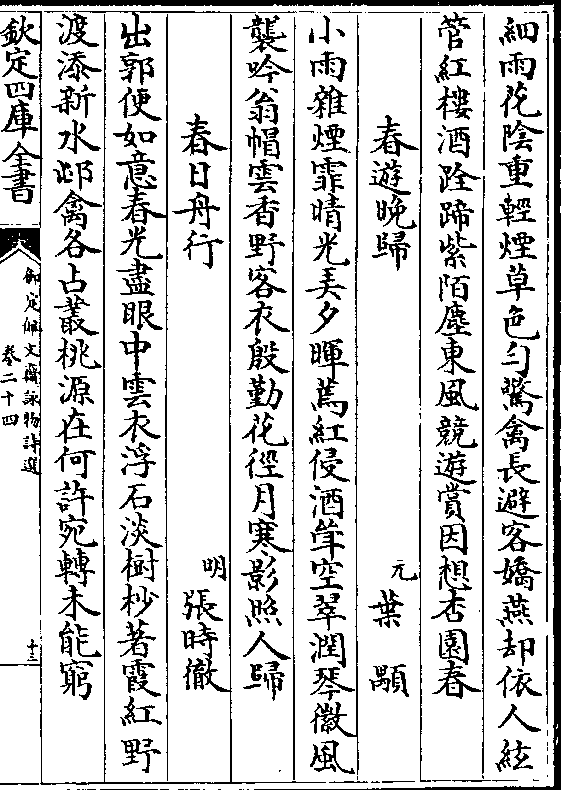 細雨花陰重輕煙草色勻驚禽長避客嬌燕却依人絃
管紅樓酒跧蹄紫陌塵東風競遊賞因想杏園春
春遊晚歸 元 葉 顒
小雨雜煙霏晴光美夕暉蔫紅侵酒斚空翠潤琴徽風
襲吟翁帽雲香野客衣殷勤花徑月寒影照人歸
春日舟行 明 張時徹
出郭便如意春光盡眼中雲衣浮石淡樹杪著霞紅野
渡添新水邨禽各占叢桃源在何許宛轉未能窮
欽定四庫全書
御定佩文齋詠物詩選
卷二十四
十三